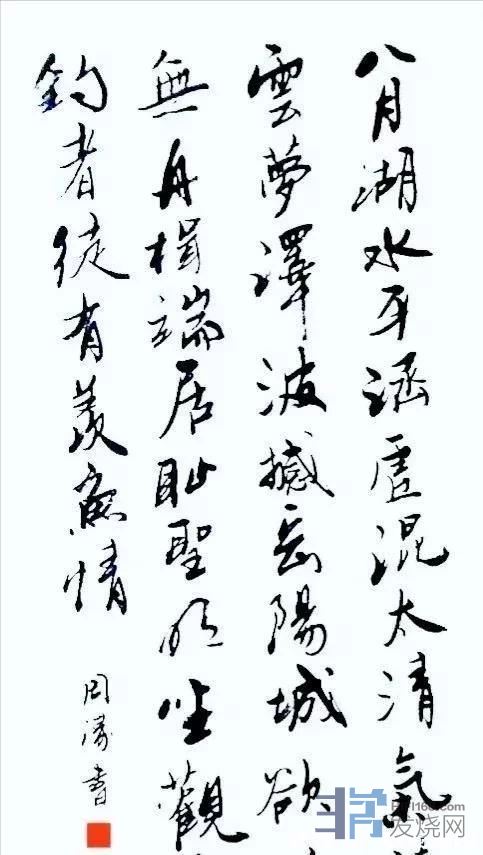 八月湖水平涵虛混太清氣
雲夢澤波撼岳陽城欲
無舟楫端居耻聖明坐觀
釣者徒有羨魚情
周濤書
发烧网